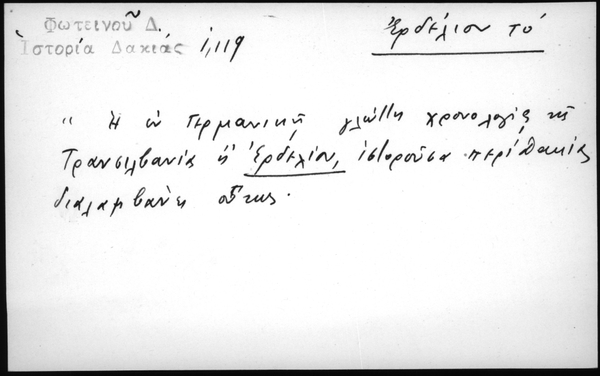 Φωτεινοῦ Δ.
Ἱστορία Δακίας 1,119
Ἐρδέλιον τό
" Ἡ ἐν Γερμανικῇ γλώττῃ χρονολογία τῆς
Τρανσιλβανίας ἤ Ἐρδελίου, ἱστοροῦσα περί Δακίας
διαλαμβάνει οὕτως.